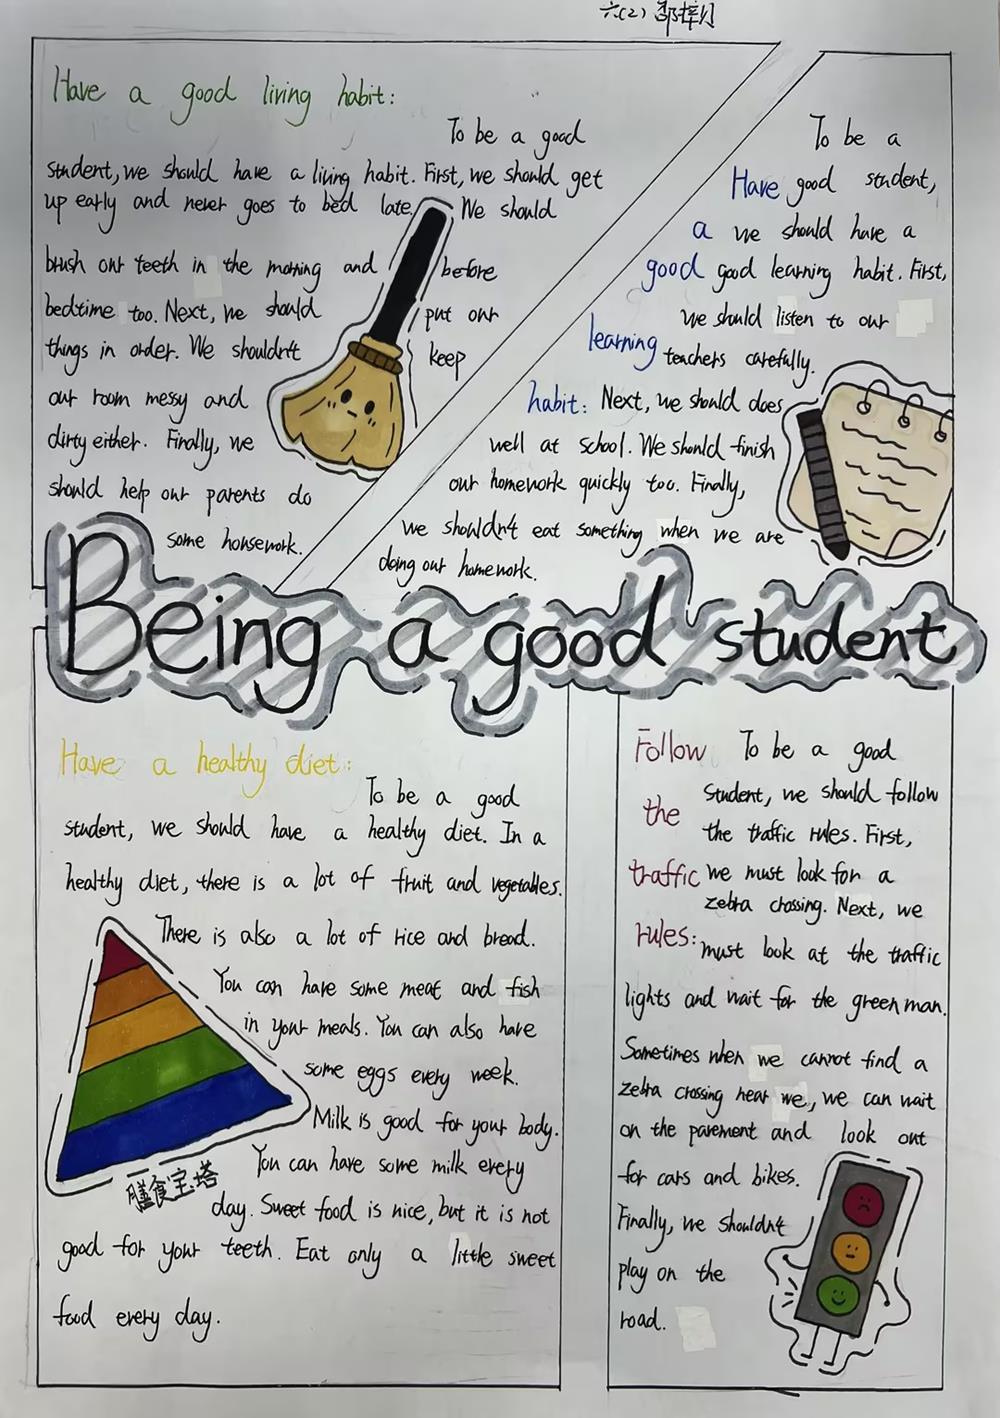 六(2)
Have a good living habit:
To be a good
student, we should have a living habit. First, we should get
up early and never goes to bed late. We should
brush our teeth in the morning and before
bedtime too. Next, we should put our
things in order. We shouldn't keep
our room messy and
dirty either. Finally, we
should help our parents do
some housework.
Have a good learning habit:
To be a
good student,
we should have a
good learning habit. First,
we should listen to our
teachers carefully.
Next, we should does
well at school. We should finish
our homework quickly too. Finally,
we shouldn't eat something when we are
doing our homework.
Being a good student
Have a healthy diet:
To be a good
student, we should have a healthy diet. In a
healthy diet, there is a lot of fruit and vegetables.
There is also a lot of rice and bread.
You can have some meat and fish
in your meals. You can also have
some eggs every week.
Milk is good for your body.
You can have some milk every
day. Sweet food is nice, but it is not
good for your teeth. Eat only a little sweet
food every day.
膳食宝塔
Follow the traffic rules:
To be a good
student, we should follow
the traffic rules. First,
we must look for a
zebra crossing. Next, we
must look at the traffic
lights and wait for the green man.
Sometimes when we cannot find a
zebra crossing near we, we can wait
on the parement and look out
for cars and bikes.
Finally, we shouldn't
play on the
road.